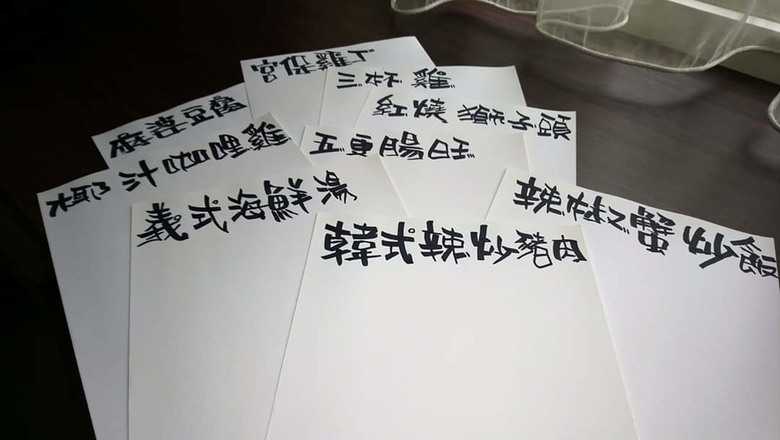 宮保雞丁
三杯雞
紅燒獅子頭
麻婆豆腐
五更腸旺
椰汁咖哩雞
辣椒蟹炒飯
義式海鮮湯
韓式辣炒豬肉